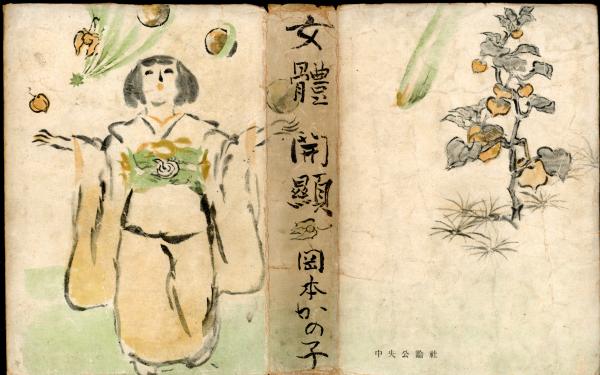 女體開顯
岡本かの子
中央公論社